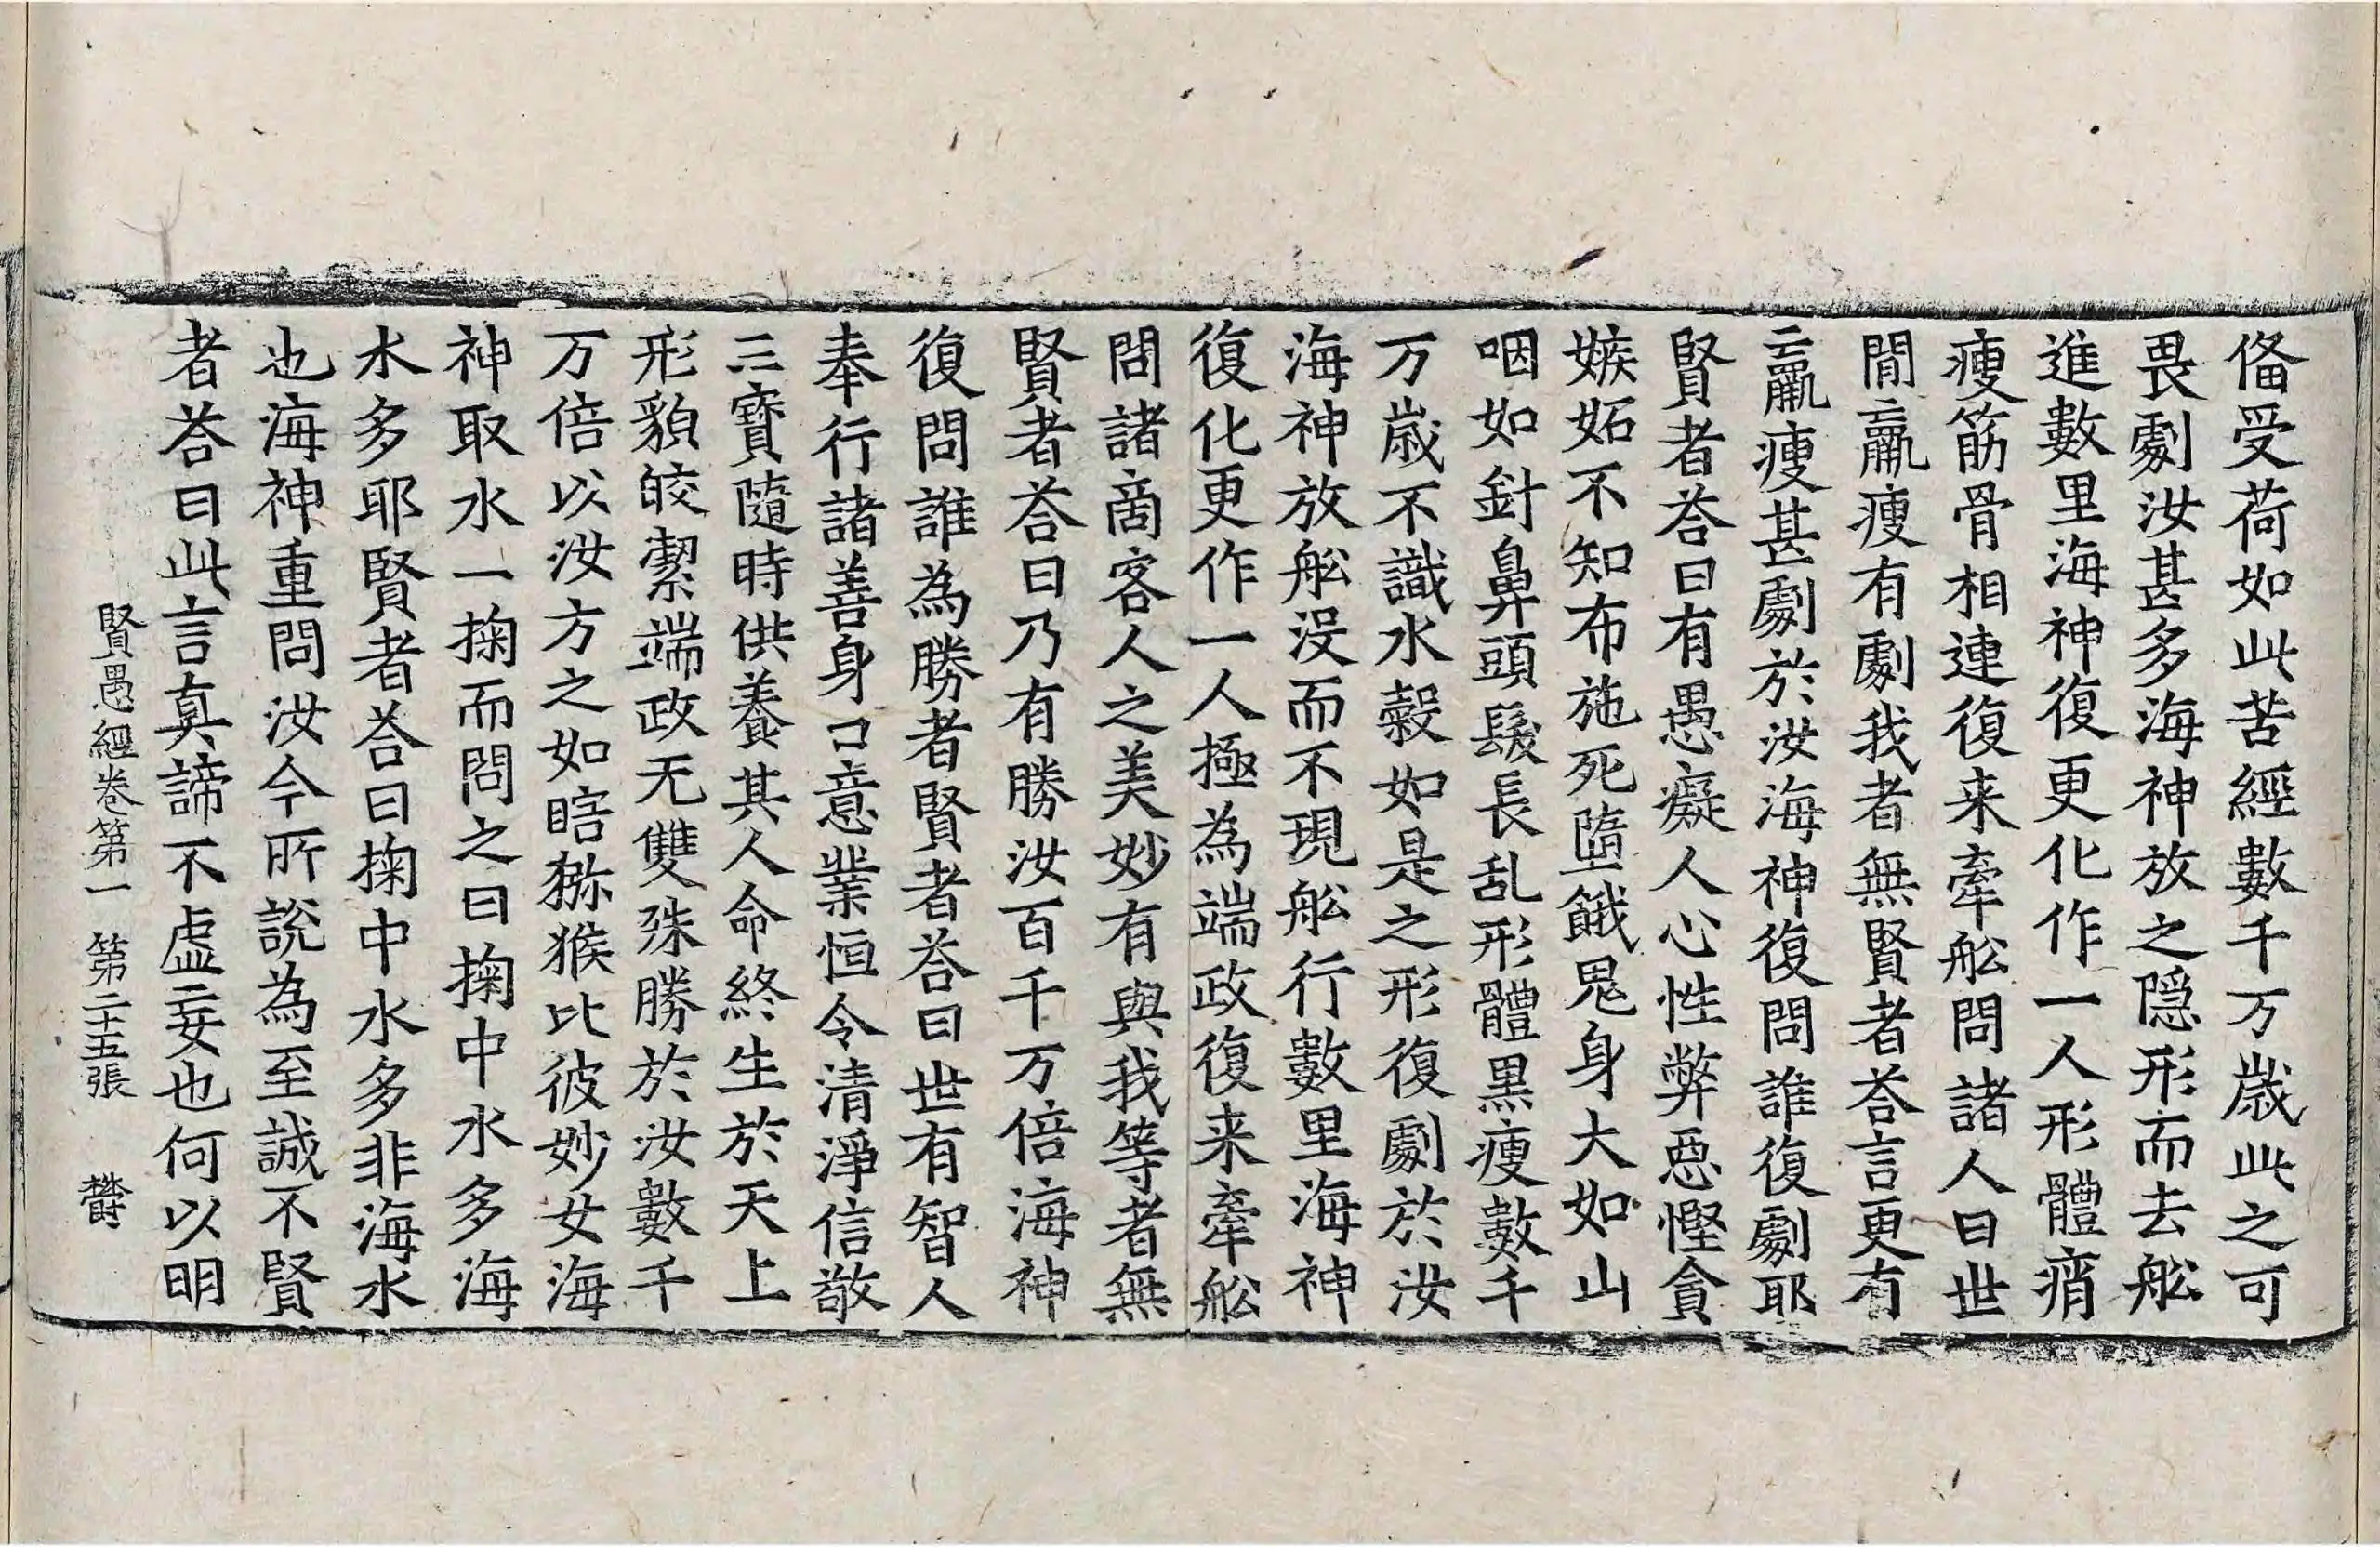 俻受荷如此苦經數千万歲此之可
畏劇汝甚多海神放之隠形而去舩
進數里海神復更化作一人形體痟
瘦筋骨相連復来牽舩問諸人曰世
閒羸瘦有劇我者無賢者荅言更有
羸瘦甚劇於汝海神復問誰復劇耶
賢者荅曰有愚癡人心性弊惡慳貪
嫉妬不知布施死墮餓鬼身大如山
咽如針鼻頭髮長乱形體黑瘦數千
万歲不識水穀如是之形復劇於汝
海神放舩没而不現舩行數里海神
復化更作一人極為端政復来牽舩
問諸啇客人之美妙有與我等者無
賢者荅曰乃有勝汝百千万倍海神
復問誰為勝者賢者荅曰世有智人
奉行諸善身口意業恒令清淨信敬
三寶隨時供養其人命終生於天上
形貌皎潔端政无雙殊勝於汝數千
万倍以汝方之如瞎獼猴比彼妙女海
神取水一掬而問之曰掬中水多海
水多耶賢者荅曰掬中水多非海水
也海神重問汝今所說為至誠不賢
者荅曰此言真諦不虛妄也何以明
賢愚經卷第一　第二十五張　欝